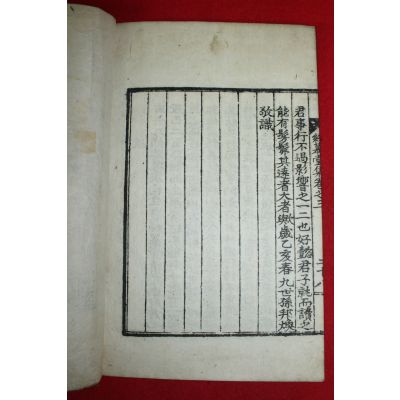 君事行不過影響之一二也好懿君子就而讀之
能有髣髴其遠者大者歟歲乙亥春九世孫邦煥
敬識
堂集卷之三